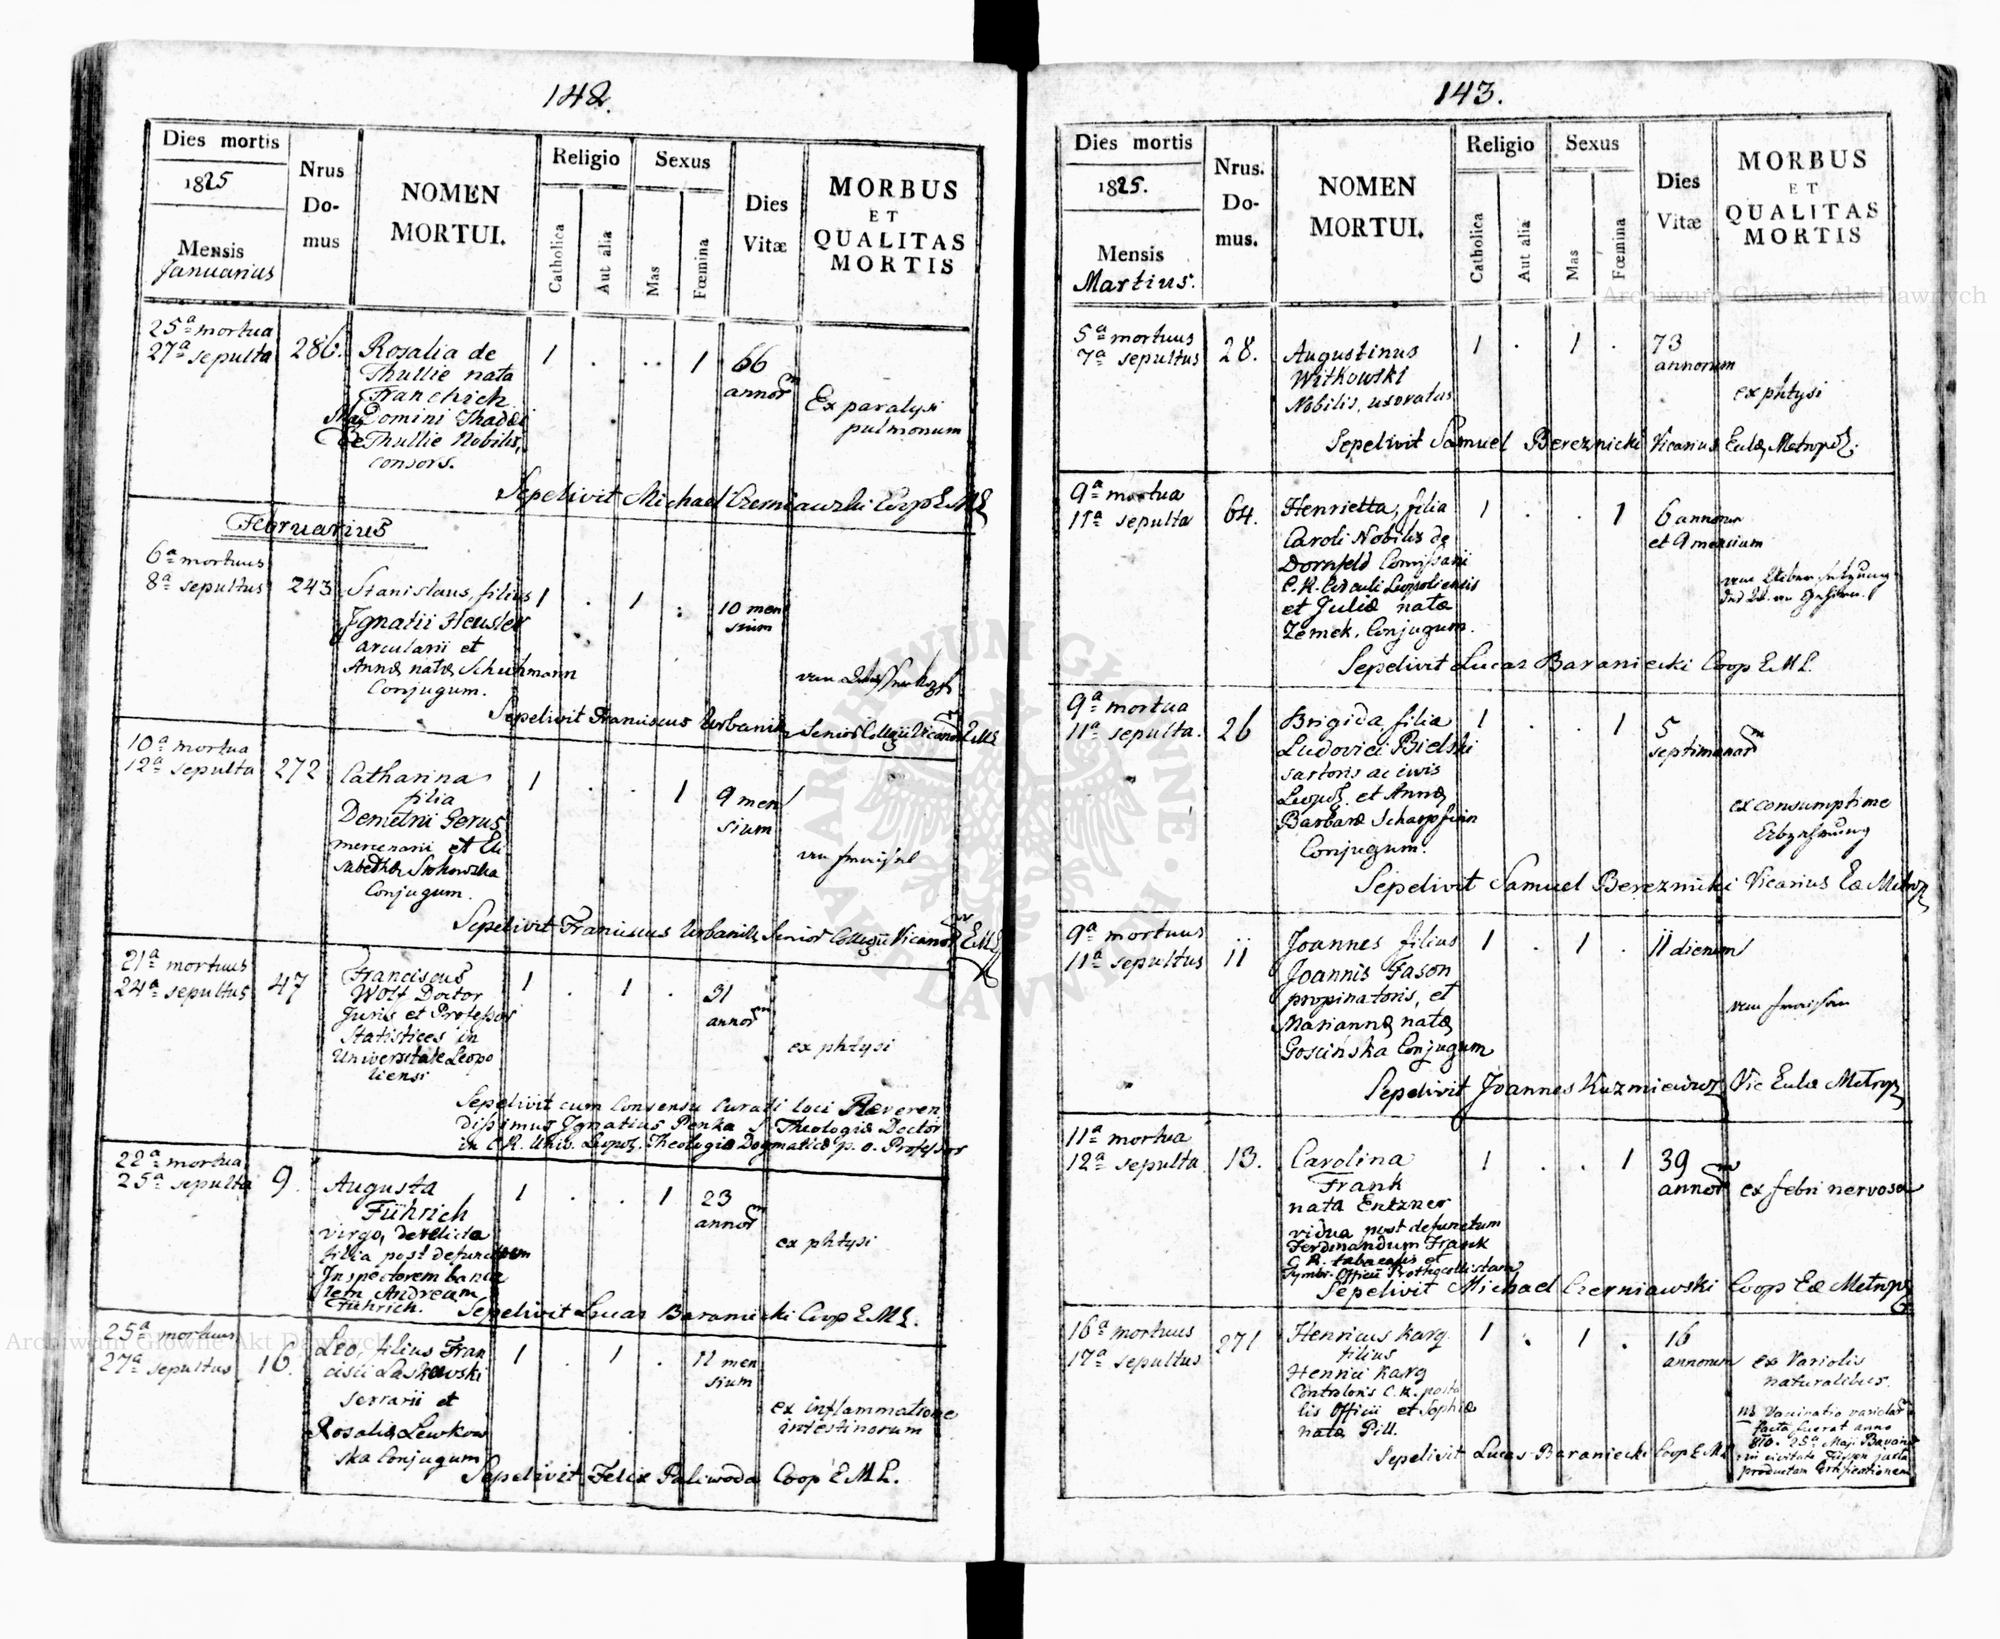 142.
Dies mortis
1825
Mensis
Januarius
Nrus
Do-
mus
NOMEN
MORTUI.
Religio
Catholica
Aut alia
Sexus
Mas
Fœmina
Dies
Vitæ
MORBUS
ET
QUALITAS
MORTIS
25ª mortua
27ª sepulta
286.
Rosalia de
Thullie nata
Franchich
Domini Thaddei
de Thullie Nobilis,
consors.
1 . .. 1
66
annorm
Ex paralysi
pulmonum
Sepelivit Michael Czerniawski Coop E M L
Februarius
6ª mortuus
8ª sepultus
243
Stanislaus, filius
Ignatii Heusler
arcularii et
Annæ natæ Schuhmann
Conjugum.
1 . 1 :
10 men
sium
Sepelivit Franciscus Urbanik Senior Collegii Vicariorm E M L
10ª mortua
12ª sepulta
272
Catharina
filia
Demetrii Gerus
mercenarii et Eli
sabethæ
Conjugum.
1 . . 1
9 men
sium
Sepelivit Franciscus Urbanik Senior Collegii Vicariorm E M L
21ª mortuus
24ª sepultus
47
Franciscus
Wolf Doctor
Juris et Professor
Statistices in
Universitate Leopo
liensi
1 . 1 .
31
annorm
ex phtysi
Sepelivit cum Consensu Curati loci Reveren
dissimus Ignatius Penka S. Theologiæ Doctor
in C. R. Univ. Leopol. Theologiæ Dogmaticæ p. o. Professor
22ª mortua
25ª sepulta
9.
Augusta
Führich
virgo, derelicta
filia post defunctum
Inspectorem banca
lem Andream
Führich.
1 . . 1
23
annorm
ex phtysi
Sepelivit Lucas Baraniecki Coop E M L.
25ª mortuus
27ª sepultus
16.
Leo, filius Fran
cisci Laskowski
serrarii et
Rosaliæ Lewkow
ska Conjugum
1 . 1 .
11 men
sium
ex inflammatione
intestinorum
Sepelivit Felix Paliwoda Coop E M L.
143.
Dies mortis
1825.
Mensis
Martius.
Nrus.
Do-
mus.
NOMEN
MORTUI.
Religio
Catholica
Aut alia
Sexus
Mas
Fœmina
Dies
Vitæ
MORBUS
ET
QUALITAS
MORTIS
5ª mortuus
7ª sepultus
28.
Augustinus
Witkowski
Nobilis, uxoratus
1 . 1 .
73
annorum
ex phtysi
Sepelivit Samuel Bereznicki Vicarius Ecclæ Metropol.
9ª mortua
11ª sepulta
64.
Henrietta, filia
Caroli Nobilis de
Dornfeld Comissarii
C. R. Circuli Leopoliensis
et Juliæ natæ
Zemek, Conjugum.
1 . . 1
6 annorum
et 9 mensium
Sepelivit Lucas Baraniecki Coop E M L.
9ª mortua
11ª sepulta.
26
Brigida filia
Ludovici Bielski
sartoris ac civis
Leopol. et Annæ
Barbaræ
Conjugum.
1 . . 1
5
septimanarm
ex consumptione
Sepelivit Samuel Bereznicki Vicarius Eæ Metrop
9ª mortuus
11ª sepultus
11
Joannes filius
Joannis Fason
propinatoris, et
Mariannæ natæ
Gościńska Conjugum
1 . 1 .
11 dierum
Sepelivit Joannes Kuzmiewicz Vic Eclæ Metrop
11ª mortua
12ª sepulta
13.
Carolina
Frank
nata Entzner
vidua post defunctum
Ferdinandum Frank
Sepelivit Michael Czerniawski Coop Eæ Metrop
1 . . 1
39
annorm
ex febri nervosa
16ª mortuus
17ª sepultus
271
Henricus Karg
filius
Henrici Karg
Controloris C. R. posta
lis Officii et Sophiæ
natæ Pill.
1 . 1 .
16
annorum
ex Variolis
naturalibus.
NB Vaccinatio variolarm
facta fuerat anno
810. 25ª Maji Bavariæ
in civitate Füssen juxta
productam Certificationem
Sepelivit Lucas Baraniecki Coop E M L
Archiwum Główne Akt Dawnych
Archiwum Główne Akt Dawnych
ARCHIWUM GŁÓWNE AKT DAWNYCH